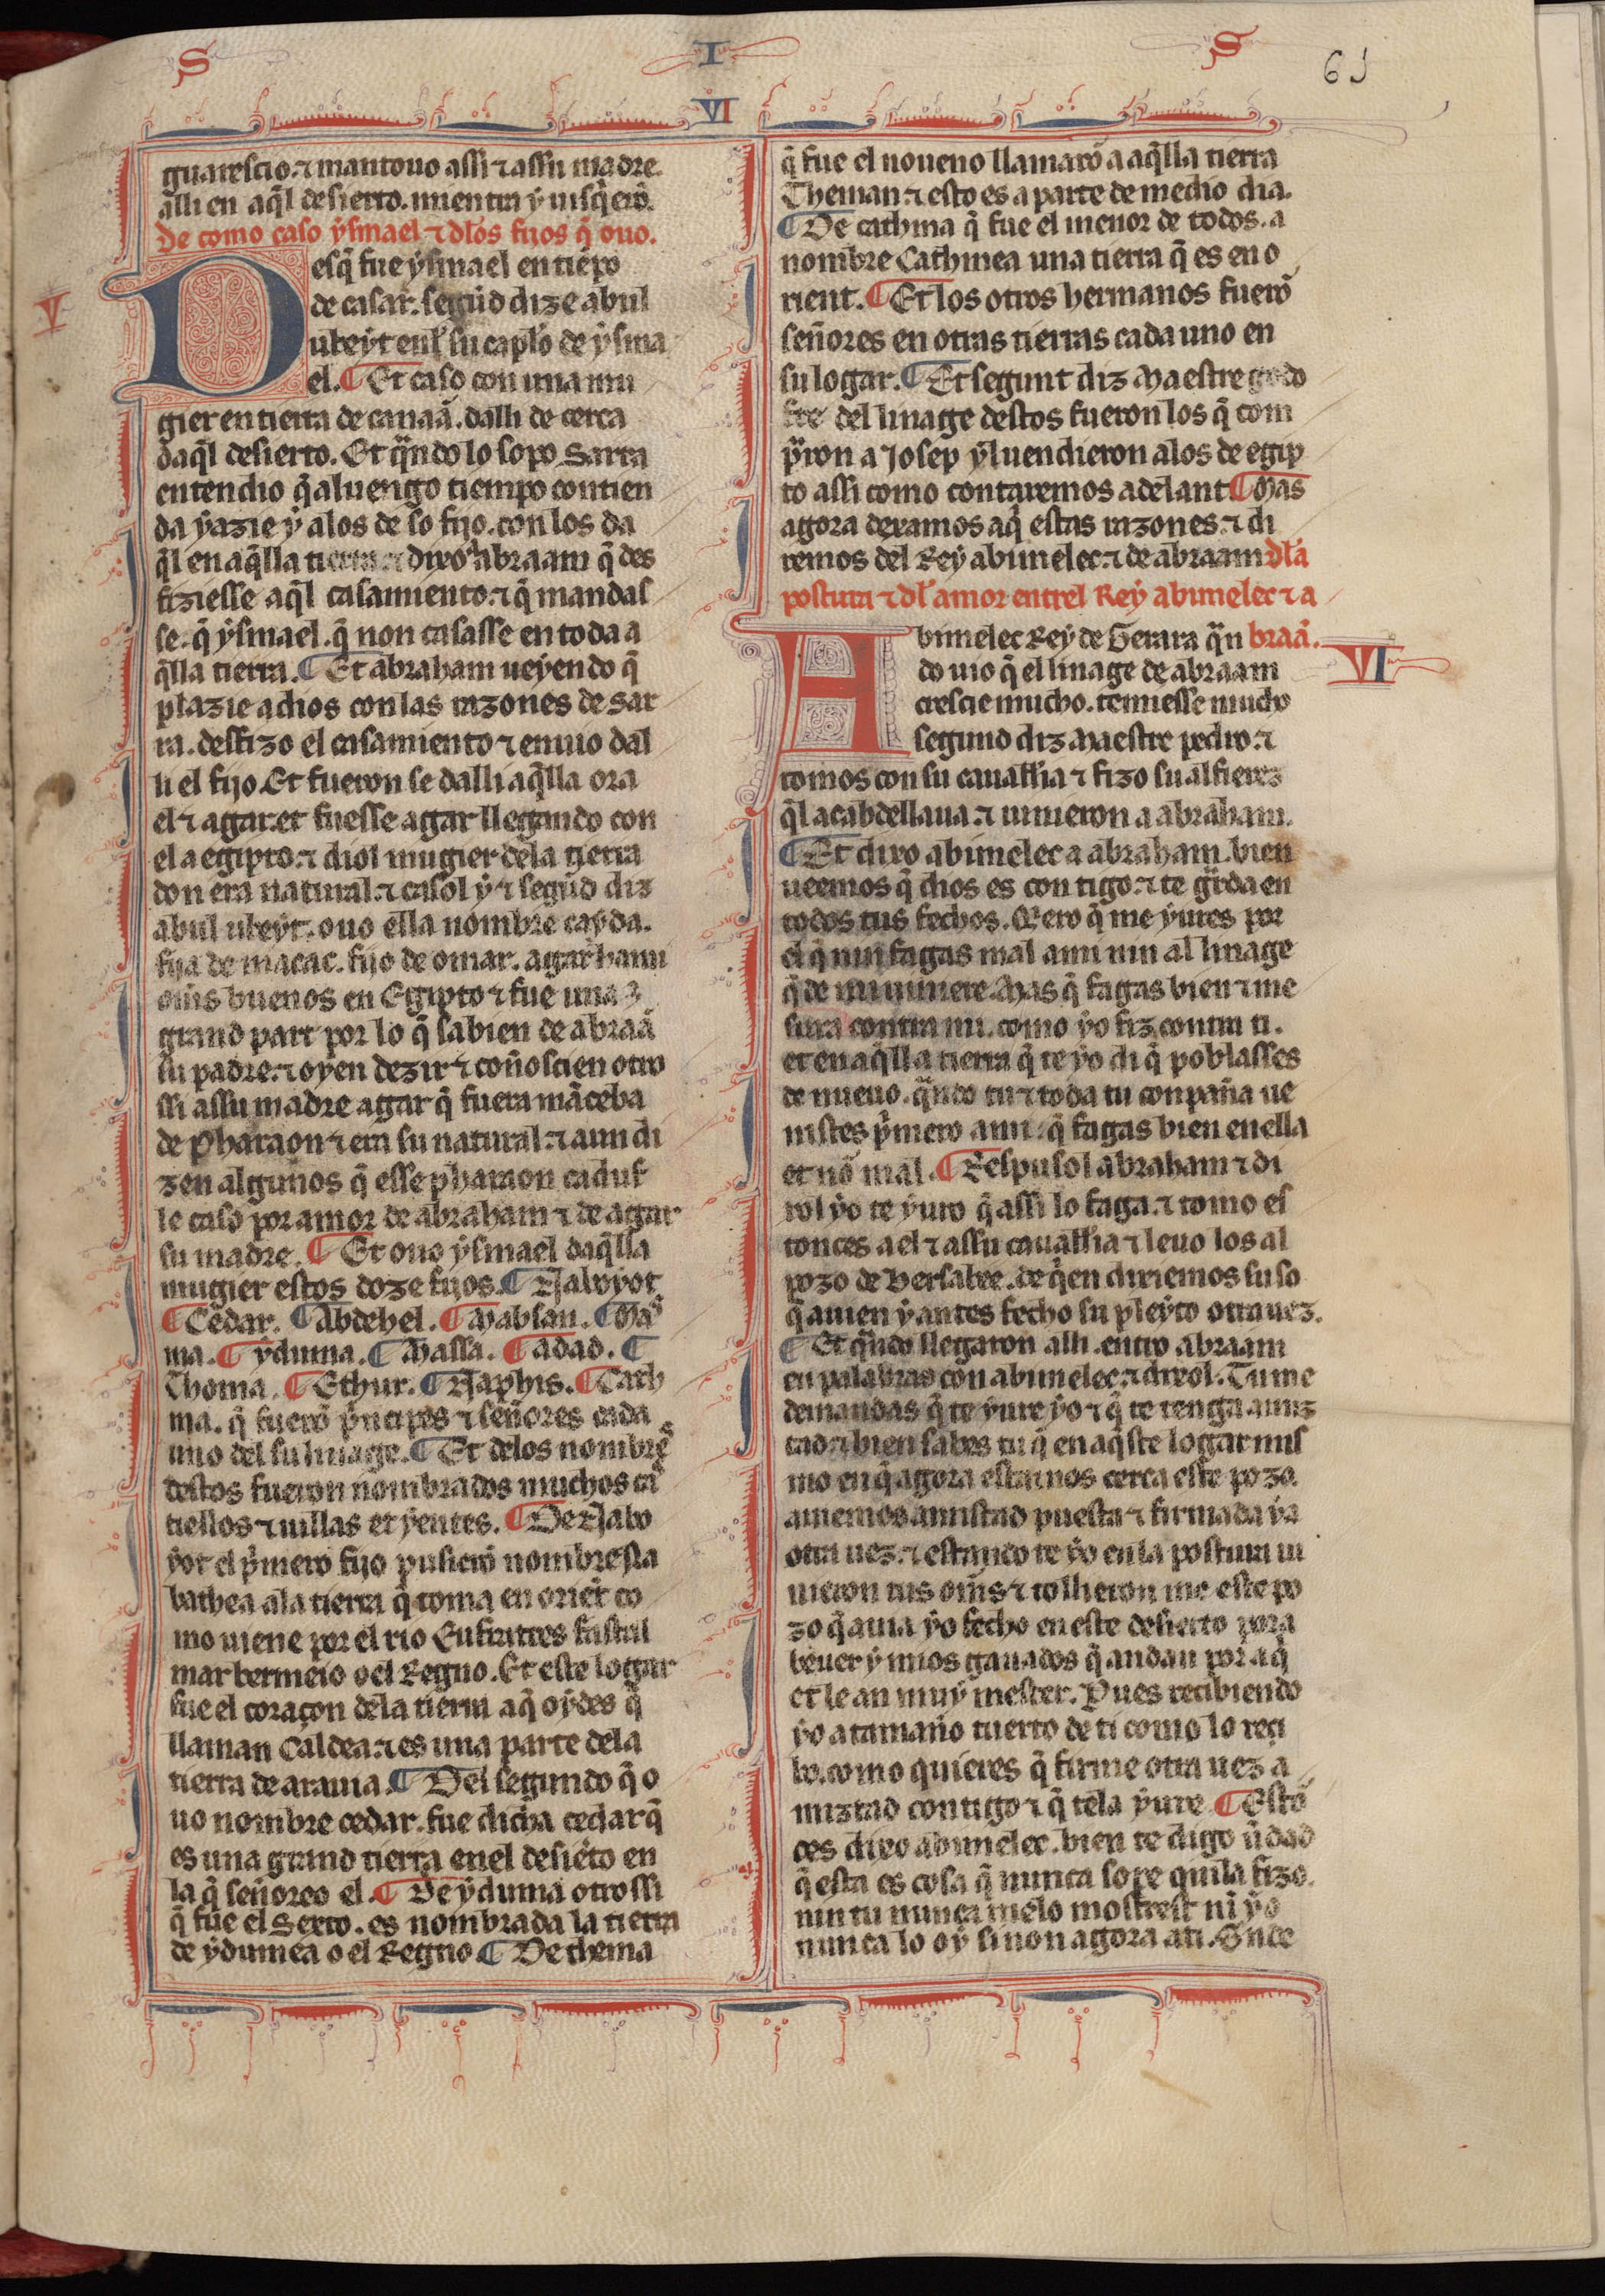 S
I
S
61
VI
guarescio. ⁊ mantouo assi ⁊ assu madre.
alli en aq̃l desierto. mientra y uisq̃ erõ.
De como caso ysmael ⁊ dlos fijos q̃ ouo.
V
Desq̃ fue ysmael en tiẽpo
de casar. segũd dize abul
ubeyt enl su caplo de ysma
el. ¶ Et caso con una mu
gier en tierra de canaã. dalli de cerca
daq̃l desierto. Et q̃ndo lo sopo Sarra
entendio q̃ aluengo tiempo contien
da yazie y alos de so fijo. con los da
q̃l en aq̃lla tierra ⁊ dixo a abraam q̃ des
fiziesse aq̃l casamiento. ⁊ q̃ mandas
se. q̃ ysmael. q̃ non casasse en toda a
q̃lla tierra. ¶ Et abraham ueyendo q̃
plazie a dios con las razones de sar
ra. desfizo el casamiento ⁊ enuio dal
li el fijo. Et fueron se dalli aq̃lla ora
el ⁊ agar. et fuesse agar llegando con
el a egipto. ⁊ diol mugier dela tierra
don era natural. ⁊ casol y ⁊ segũd diz
abul ubeyt. ouo ella nombre cayda.
fija de macac. fijo de omar. agar hanii
om̃s buenos en Egipto ⁊ fue una
grand part por lo q̃ sabien de abraã
su padre. ⁊ oyen dezir ⁊ coñoscien otro
ssi assu madre agar q̃ fuera mãceba
de Pharaon ⁊ era su natural. ⁊ aun di
zen algunos q̃ esse pharaon caduf
le caso por amor de abraham ⁊ de agar
su madre. ¶ Et ouo ysmael daq̃lla
mugier estos doze fijos. ¶ Naboyot
¶ Cedar. ¶ Abdehel. ¶ Mabsan. ¶ Mas
ma. ¶ yduma. ¶ Massa. ¶ adad. ¶
Thoma. ¶ Ethur. ¶ Naphis. ¶ Cath
ma. q̃ fuerõ p̃ncipes ⁊ señores cada
uno del su linage. ¶ Et delos nombres
destos fueron nombrados muchos cas
tiellos ⁊ uillas et yentes. ¶ De Nabo
yot el p̃mero fijo pusierõ nombre sla
bathea ala tierra q̃ toma en oriẽt co
mo uiene por el rio Eufrates fastal
mar bermeio o el Regno. Et este logar
fue el coraçon dela tierra aq̃ oydes q̃
llaman Caldea. ⁊ es una parte dela
tierra de arauia. ¶ Del segundo q̃ o
uo nombre cedar. fue dicha cedar q̃
es una grand tierra enel desiẽto en
la q̃ señoreo el. ¶ De yduma otrossi
q̃ fue el Sexto. es nombrada la tierra
de ydumea o el Regno. ¶ De thema
q̃ fue el noueno llamarõ a aq̃lla tierra
Theman. ⁊ esto es a parte de medio dia.
¶ De cathma q̃ fue el menor de todos. a
nombre Cathmea una tierra q̃ es en o
rient. ¶ Et los otros hermanos fuerõ
señores en otras tierras cada uno en
su logar. ¶ Et segunt diz Maestre godo
fre del linage destos fueron los q̃ com
p̃ron a Josep y luendieron alos de egip
to assi como contaremos adelant. ¶ Mas
agora dexamos aq̃ estas razones. ⁊ di
remos del Rey abimelec. ⁊ de abraam. dla
postura ⁊ dl amor entrel Rey abimelec ⁊ a
braã.
VI
Abimelec Rey de Gerara q̃n
do uio q̃ el linage de abraam
crescie mucho. temiesse mucho
segund diz Maestre pedro. ⁊
tomos con su cauallia ⁊ fizo su alfierez
q̃l acabdellaua. ⁊ uinieron a abraham.
¶ Et dixo abimelec a abraham. bien
ueemos q̃ dios es contigo. ⁊ te g̃rda en
todos tus fechos. Q̃ero q̃ me yures por
el q̃ nin fagas mal ami nin al linage
q̃ de mi uiniere. Mas q̃ fagas bien ⁊ me
sura contra mi. como yo fiz contra ti.
et en aq̃lla tierra q̃ te yo di q̃ poblasses
de nueuo. q̃ndo tu ⁊ toda tu conpaña ue
nistes p̃mero aqui. q̃ fagas bien enella
et nõ mal. ¶ Respusol abraham ⁊ di
xol yo te yuro q̃ assi lo faga. ⁊ tomo es
tonces a el ⁊ assu cauallia ⁊ leuo los al
pozo de bersabee. de q̃en dixiemos suso
q̃ auien y antes fecho su pleyto otra uez.
¶ Et q̃ndo llegaron alli. entro abraam
en palabras con abimelec. ⁊ dixol. Tu me
demandas q̃ te yure yo ⁊ q̃ te tenga amiz
tad. ⁊ bien sabes tu q̃ en aq̃ste logar mis
mo en q̃ agora estamos cerca este pozo.
auiemos amistad puesta ⁊ firmada ya
otra uez. ⁊ estando te yo en la postura ui
nieron tus om̃s ⁊ tollieron me este po
zo q̃ auia yo fecho en este desierto pora
beuer y mios ganados q̃ andan por aq̃
et le an muy mester. Pues recibiendo
yo atamaño tuerto de ti como lo reçi
bo. como quieres q̃ firme otra uez a
miztad contigo ⁊ q̃ tela yure. ¶ Estõ
ces dixo abimelec. bien te digo ũdad
q̃ esta es cosa q̃ nunca sope quila fizo.
nin tu nunca melo mostrest nĩ yo
nunca lo oy sinon agora ati. Onde